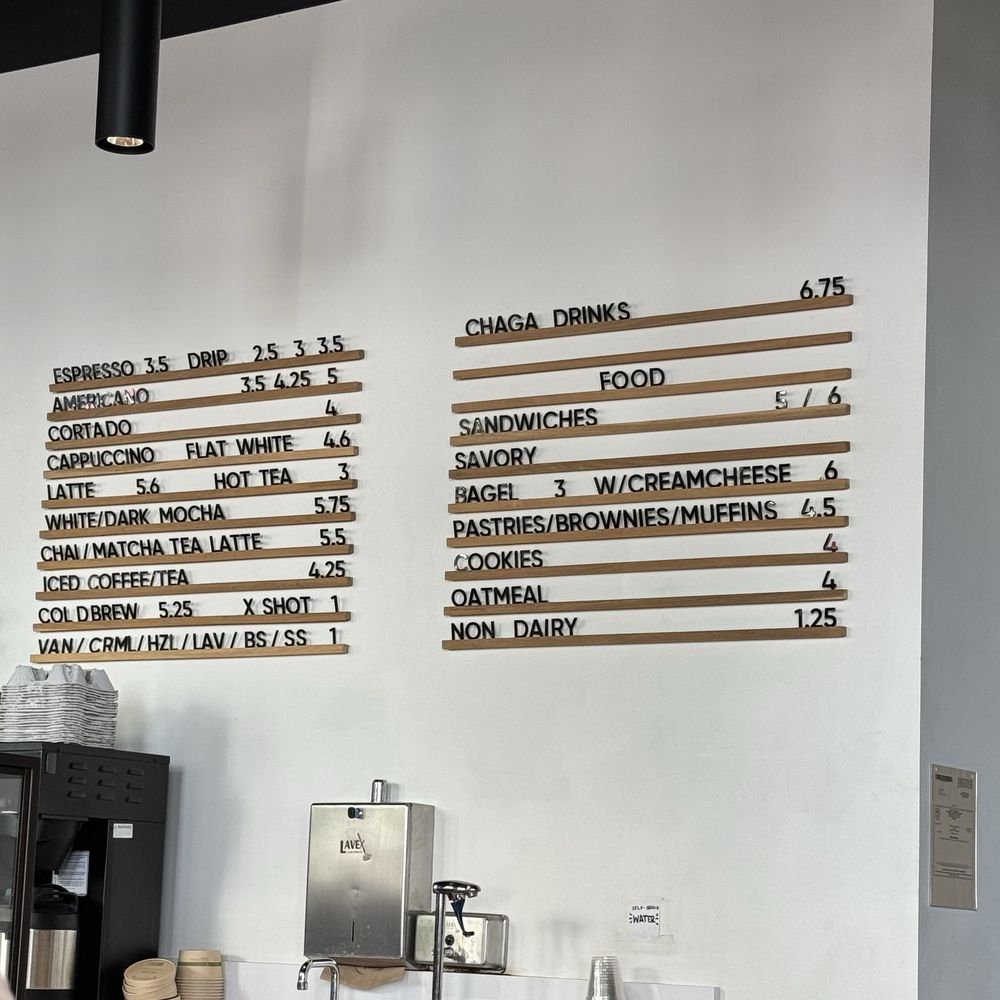 ESPRESSO 3.5 DRIP 2.5 3 3.5
AMERICANO 3.5 4.25 5
CORTADO 4
CAPPUCCINO FLAT WHITE 4.6
LATTE 5.6 HOT TEA 3
WHITE/DARK MOCHA 5.75
CHAI/MATCHA TEA LATTE 5.5
ICED COFFEE/TEA 4.25
COLDBREW 5.25 X SHOT 1
VAN/CRML/HZL/LAV/BS/SS 1
CHAGA DRINKS 6.75
FOOD
SANDWICHES 5 / 6
SAVORY
BAGEL 3 W/CREAMCHEESE 6
PASTRIES/BROWNIES/MUFFINS 4.5
COOKIES 4
OATMEAL 4
NON DAIRY 1.25
LAVEX
SELF-SERVE
WATER